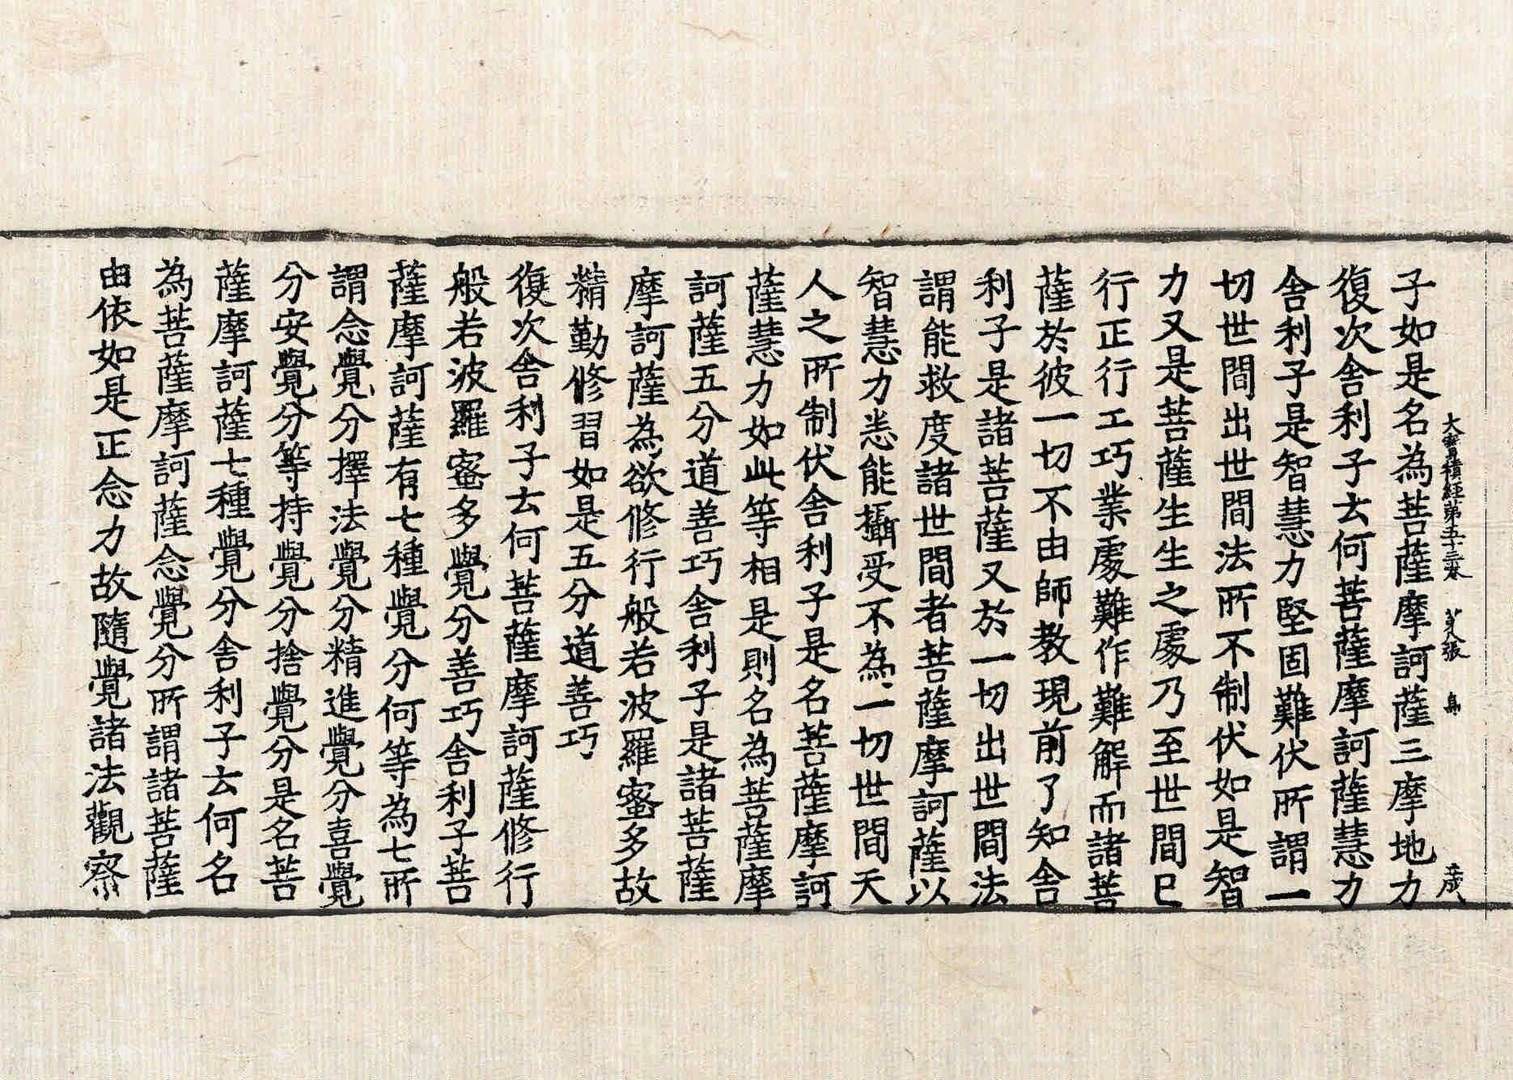 大寶積經第五十三卷 第八張 鳥
子如是名為菩薩摩訶薩三摩地力
復次舍利子云何菩薩摩訶薩慧力
舍利子是智慧力堅固難伏所謂一
切世間出世間法所不制伏如是智
力又是菩薩生生之處乃至世間巳
行正行工巧業處難作難解而諸菩
薩於彼一切不由師教現前了知舍
利子是諸菩薩又於一切出世間法
謂能救度諸世間者菩薩摩訶薩以
智慧力悉能攝受不為一切世間天
人之所制伏舍利子是名菩薩摩訶
薩慧力如此等相是則名為菩薩摩
訶薩五分道善巧舍利子是諸菩薩
摩訶薩為欲修行般若波羅蜜多故
精勤修習如是五分道善巧
復次舍利子云何菩薩摩訶薩修行
般若波羅蜜多覺分善巧舍利子菩
薩摩訶薩有七種覺分何等為七所
謂念覺分擇法覺分精進覺分喜覺
分安覺分等持覺分捨覺分是名菩
薩摩訶薩七種覺分舍利子云何名
為菩薩摩訶薩念覺分所謂諸菩薩
由依如是正念力故隨覺諸法觀察